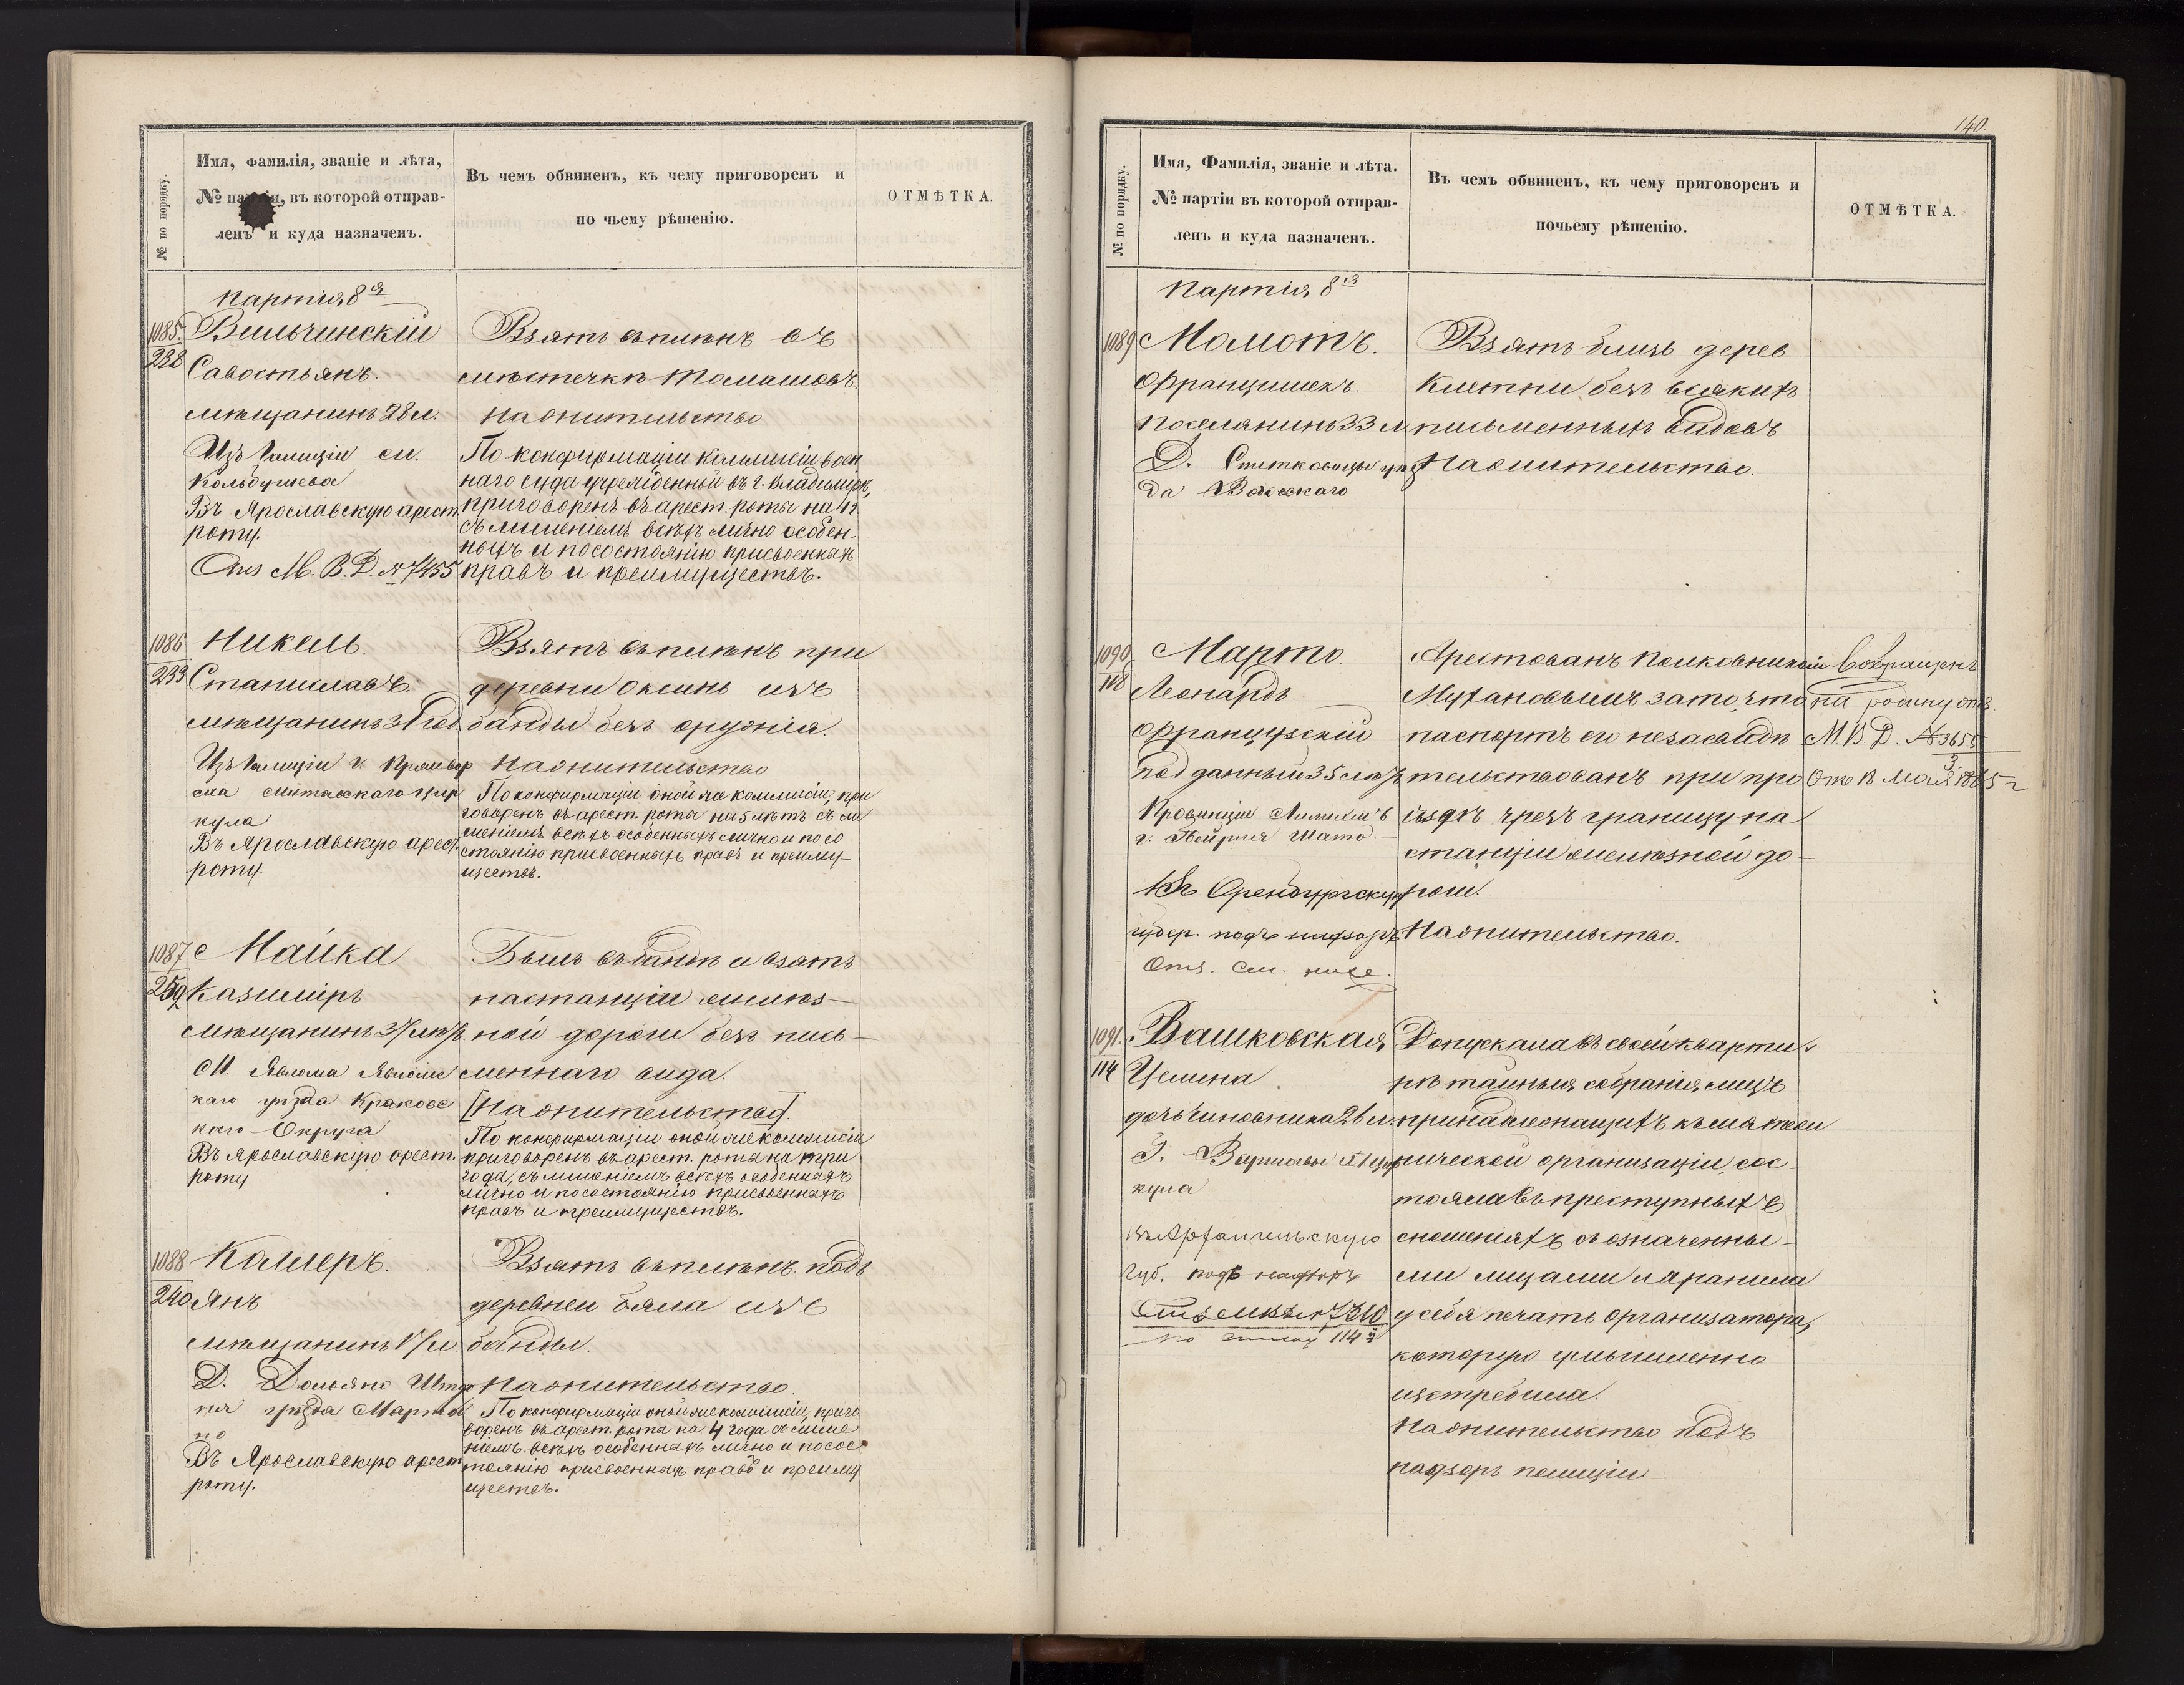 № по порядку.
Имя, фамилія, званіе и лѣта,
№ партіи, въ которой отправ-
ленъ и куда назначенъ.
Въ чемъ обвиненъ, къ чему приговоренъ и
по чьему рѣшенію.
ОТМѢТКА.
Партія 8я
1085.
232
Вильчинскій
Савостьянъ.
мѣщанинъ 28 л.
Изъ Галиціи м.
Кольбушева
Въ Ярославскую арест.
роту.
От. М. В. Д. № 7455
Взятъ въ плѣнъ въ
мѣстечкѣ Томашовъ.
На жительство
По конфирмаціи Коммисіи воен
наго суда учрежденной въ г. Владимірѣ,
приговоренъ въ арест. роты на 4 г.
съ лишеніемъ всѣхъ лично особен-
ныхъ и по состоянію присвоенныхъ
правъ и преимуществъ.
1086
233
Никель.
Станиславъ.
мѣщанинъ 31 год.
Изъ Галиціи г.
кула
Въ Ярославскую арест.
роту.
Взятъ въ плѣнъ при
деревни Оксинь изъ
банды безъ оружія.
На жительство
По конфирмаціи оной же коммисіи, при
говоренъ въ арест. роты на 5 лѣтъ съ ли
шеніемъ всѣхъ особенныхъ лично и по со
стоянію присвоенныхъ правъ и преиму-
ществъ.
1087
259
Майка
Казиміръ
мѣщанинъ 31 лѣтъ.
каго уѣзда Краковс
каго Округа
Въ Ярославскую арест.
роту
Былъ въ бандѣ и взятъ
на станціи желѣз-
ной дороги безъ пись-
меннаго вида.
[На жительство].
По конфирмаціи оной же коммисіи
приговоренъ въ арест. роты на три
года, съ лишеніемъ всѣхъ особенныхъ
лично и по состоянію присвоенныхъ
правъ и преимуществъ.
1088
240
Калмеръ.
Янъ
мѣщанинъ 17 л
Д.
уѣзда
но
Въ Ярославскую арест
роту.
Взятъ въ плѣнъ подъ
деревнею Бяла изъ
банды.
На жительство.
По конфирмаціи оной же коммисіи, приго
воренъ въ арест. роты на 4 года съ лише
ніемъ всѣхъ особенныхъ лично и по сос
тоянію присвоенныхъ правъ и преиму
ществъ.
140.
№ по порядку.
Имя, Фамилія, званіе и лѣта.
№ партіи въ которой отправ-
ленъ и куда назначенъ.
Въ чемъ обвиненъ, къ чему приговоренъ и
почьему рѣшенію.
ОТМѢТКА.
Партія 8я
1089
Мамотъ.
Францишекъ.
поселянинъ 33 л
Д. уѣз
да
Взятъ близь дерев
Клетни безъ всякихъ
письменныхъ видовъ
На жительство.
1090
118
Марто
Леонардъ.
Французскій
под данный 35 лѣтъ
Провинціи
г. Шато.
Въ Оренбургскую
губер. подъ надзоръ
Отм. см. ниже.
Арестованъ Полковникомъ
Мухановымъ за то, что
паспортъ его не засвидѣ
тельствованъ при про
ѣздѣ чрезъ границу на
станціи желѣзной до-
роги.
На жительство.
Возвращенъ
на родину отн
М. В. Д. № 3655
От 12 Мая 1865 г
1091.
114
Вашковская
Целина
дочь чиновника 26 л.
Г. Варшавы
кула
Въ Архангельскую
губ. подъ надзоръ
№ 7310
114
Допускала въ своей кварти
рѣ тайныя собранія лицъ
принадлежащихъ къ мятеж
нической организаціи, сос-
тояла въ преступныхъ
сношеніяхъ съ означенны-
ми лицами и хранила
у себя печать организатора,
которую умышленно
истребила.
На жительство подъ
надзоръ полиціи